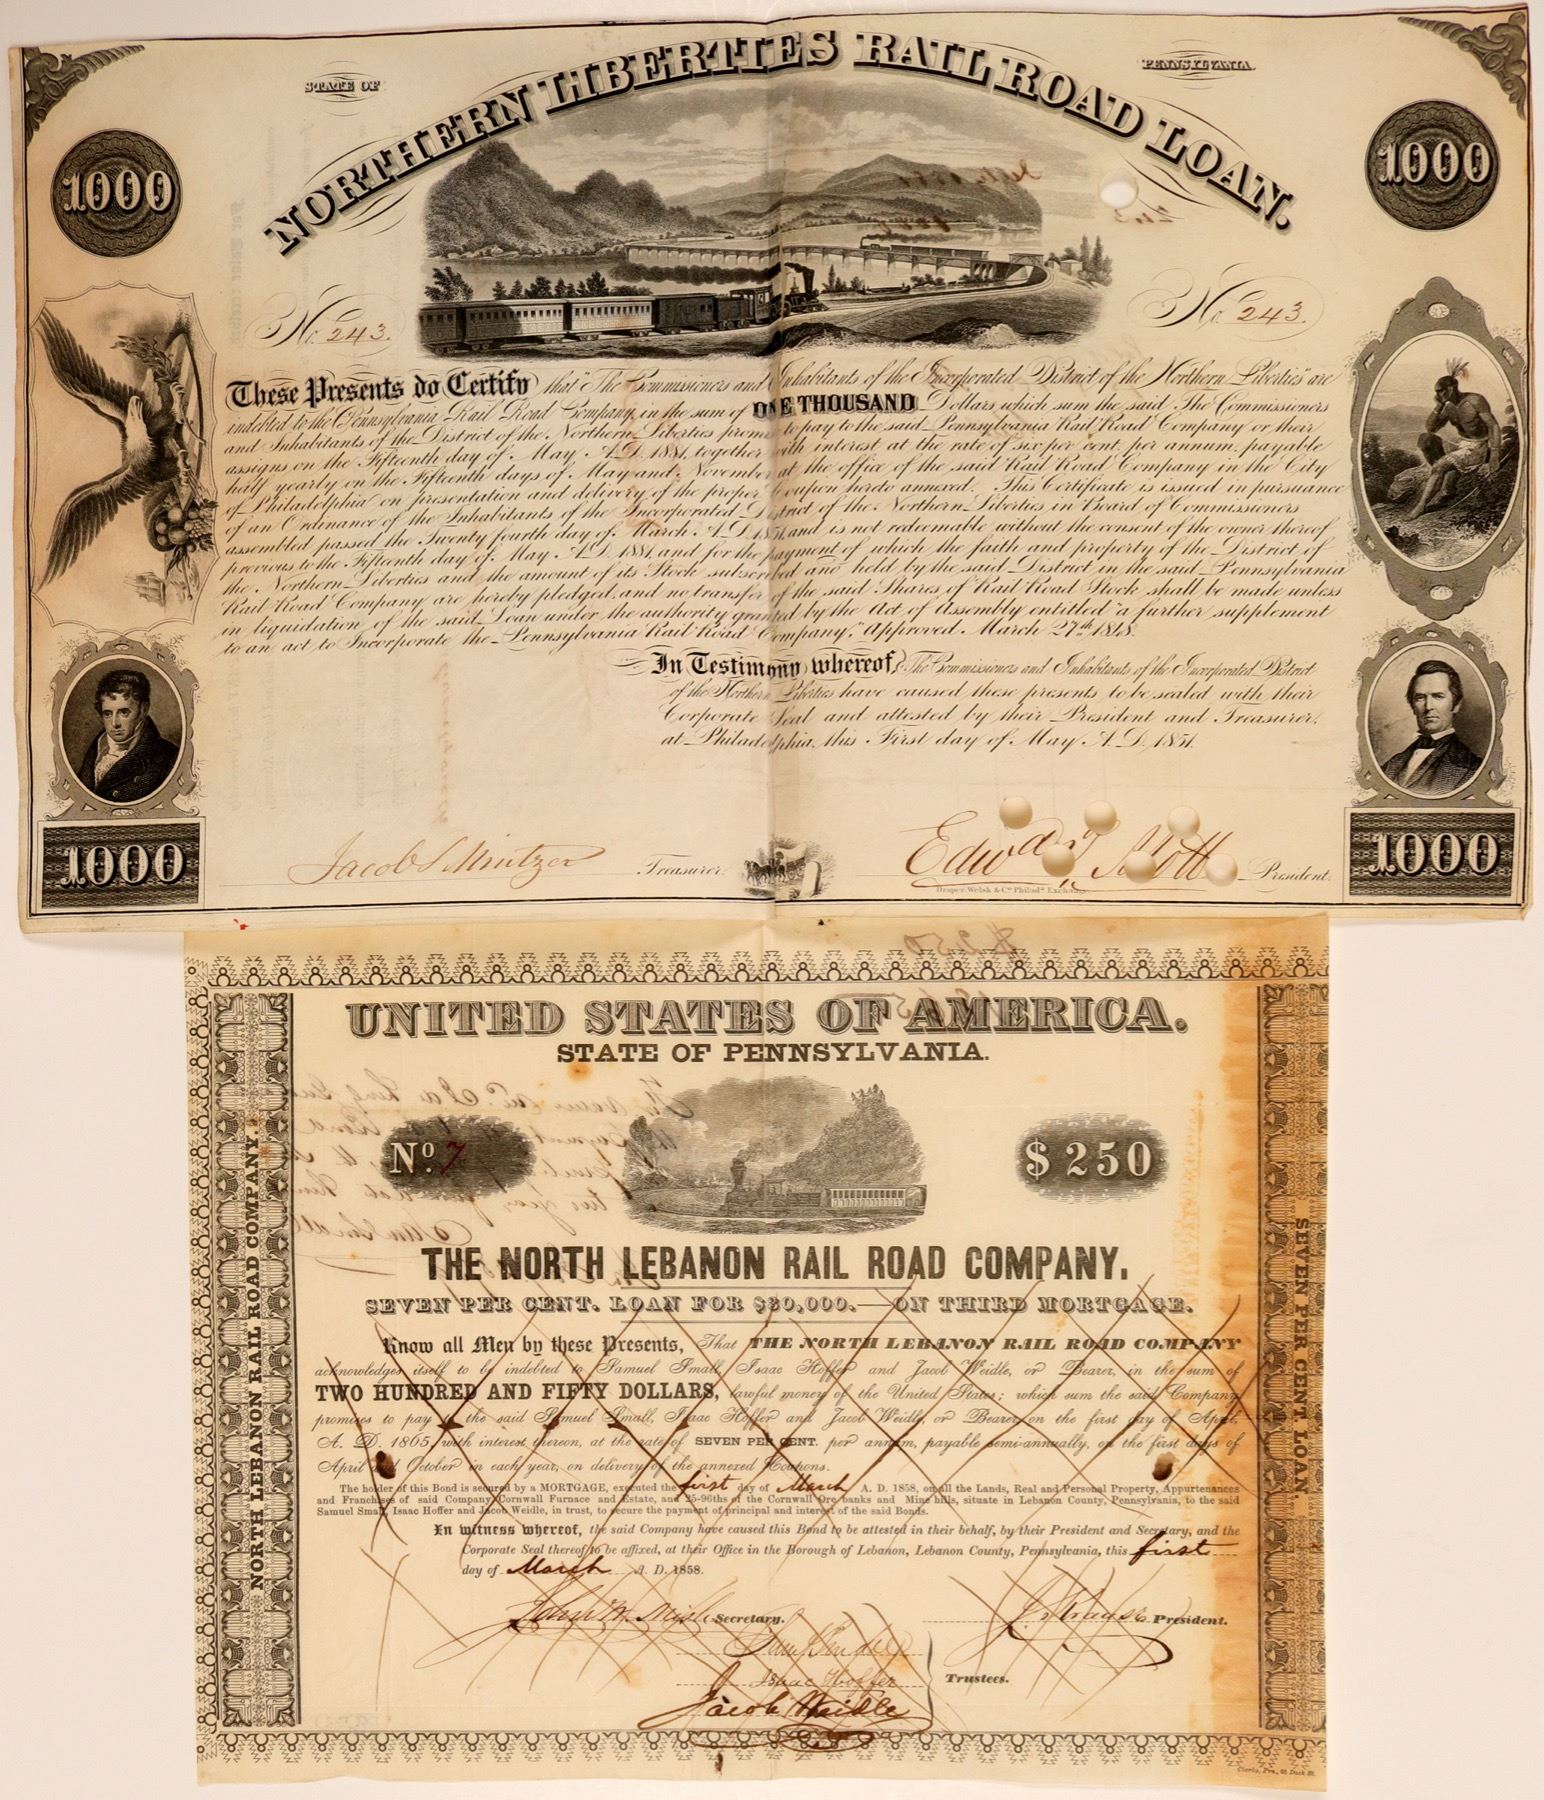 STATE OF
PENNSYLVANIA.
NORTHERN LIBERTIES RAIL ROAD LOAN.
1000
1000
No. 243.
No. 243.
These Presents do Certify that "The Commissioners and Inhabitants of the Incorporated District of the Northern Liberties" are
indebted to the Pennsylvania Rail Road Company, in the sum of ONE THOUSAND Dollars, which sum the said The Commissioners
and Inhabitants of the District of the Northern Liberties promise to pay to the said Pennsylvania Rail Road Company or their
assigns on the Fifteenth day of May A.D. 1881, together with interest at the rate of six per cent. per annum, payable
half yearly on the Fifteenth days of May and November at the office of the said Rail Road Company in the City
of Philadelphia on presentation and delivery of the proper Coupon hereto annexed. This Certificate is issued in pursuance
of an Ordinance of the Inhabitants of the Incorporated District of the Northern Liberties in Board of Commissioners
assembled passed the Twenty fourth day of March A.D. 1851, and is not redeemable without the consent of the owner thereof
previous to the Fifteenth day of May A.D. 1881, and for the payment of which the faith and property of the District of
the Northern Liberties and the amount of its Stock subscribed and held by the said District in the said Pennsylvania
Rail Road Company are hereby pledged, and no transfer of the said Shares of Rail Road Stock shall be made unless
in liquidation of the said Loan under the authority granted by the Act of Assembly entitled "a further supplement
to an act to Incorporate the Pennsylvania Rail Road Company," Approved March 27th 1848.
In Testimony whereof, The Commissioners and Inhabitants of the Incorporated District
of the Northern Liberties have caused these presents to be sealed with their
Corporate Seal and attested by their President and Treasurer,
at Philadelphia, this First day of May A.D. 1851.
1000
1000
Jacob S Mintzer Treasurer.
Edwd T. Mott President.
Draper, Welsh & Co Philada Exchange
UNITED STATES OF AMERICA.
STATE OF PENNSYLVANIA.
No. 7
$250
THE NORTH LEBANON RAIL ROAD COMPANY.
SEVEN PER CENT. LOAN FOR $30,000.—ON THIRD MORTGAGE.
Know all Men by these Presents, That THE NORTH LEBANON RAIL ROAD COMPANY
acknowledges itself to be indebted to Samuel Small, Isaac Hoffer and Jacob Weidle, or Bearer, in the sum of
TWO HUNDRED AND FIFTY DOLLARS, lawful money of the United States; which sum the said Company
promises to pay to the said Samuel Small, Isaac Hoffer and Jacob Weidle, or Bearer, on the first day of April,
A. D. 1865, with interest thereon, at the rate of SEVEN PER CENT. per annum, payable semi-annually, on the first days of
April and October in each year, on delivery of the annexed Coupons.
The holder of this Bond is secured by a MORTGAGE, executed the first day of March A. D. 1858, on all the Lands, Real and Personal Property, Appurtenances
and Franchises of said Company, Cornwall Furnace and Estate, and 25-96ths of the Cornwall Ore banks and Mine hills, situate in Lebanon County, Pennsylvania, to the said
Samuel Small, Isaac Hoffer and Jacob Weidle, in trust, to secure the payment of principal and interest of the said Bonds.
In witness whereof, the said Company have caused this Bond to be attested in their behalf, by their President and Secretary, and the
Corporate Seal thereof to be affixed, at their Office in the Borough of Lebanon, Lebanon County, Pennsylvania, this first
day of March A. D. 1858.
John W. Mish Secretary.
J. Krause President.
Isaac Hoffer
Trustees.
Jacob Weidle
NORTH LEBANON RAIL ROAD COMPANY.
SEVEN PER CENT. LOAN.